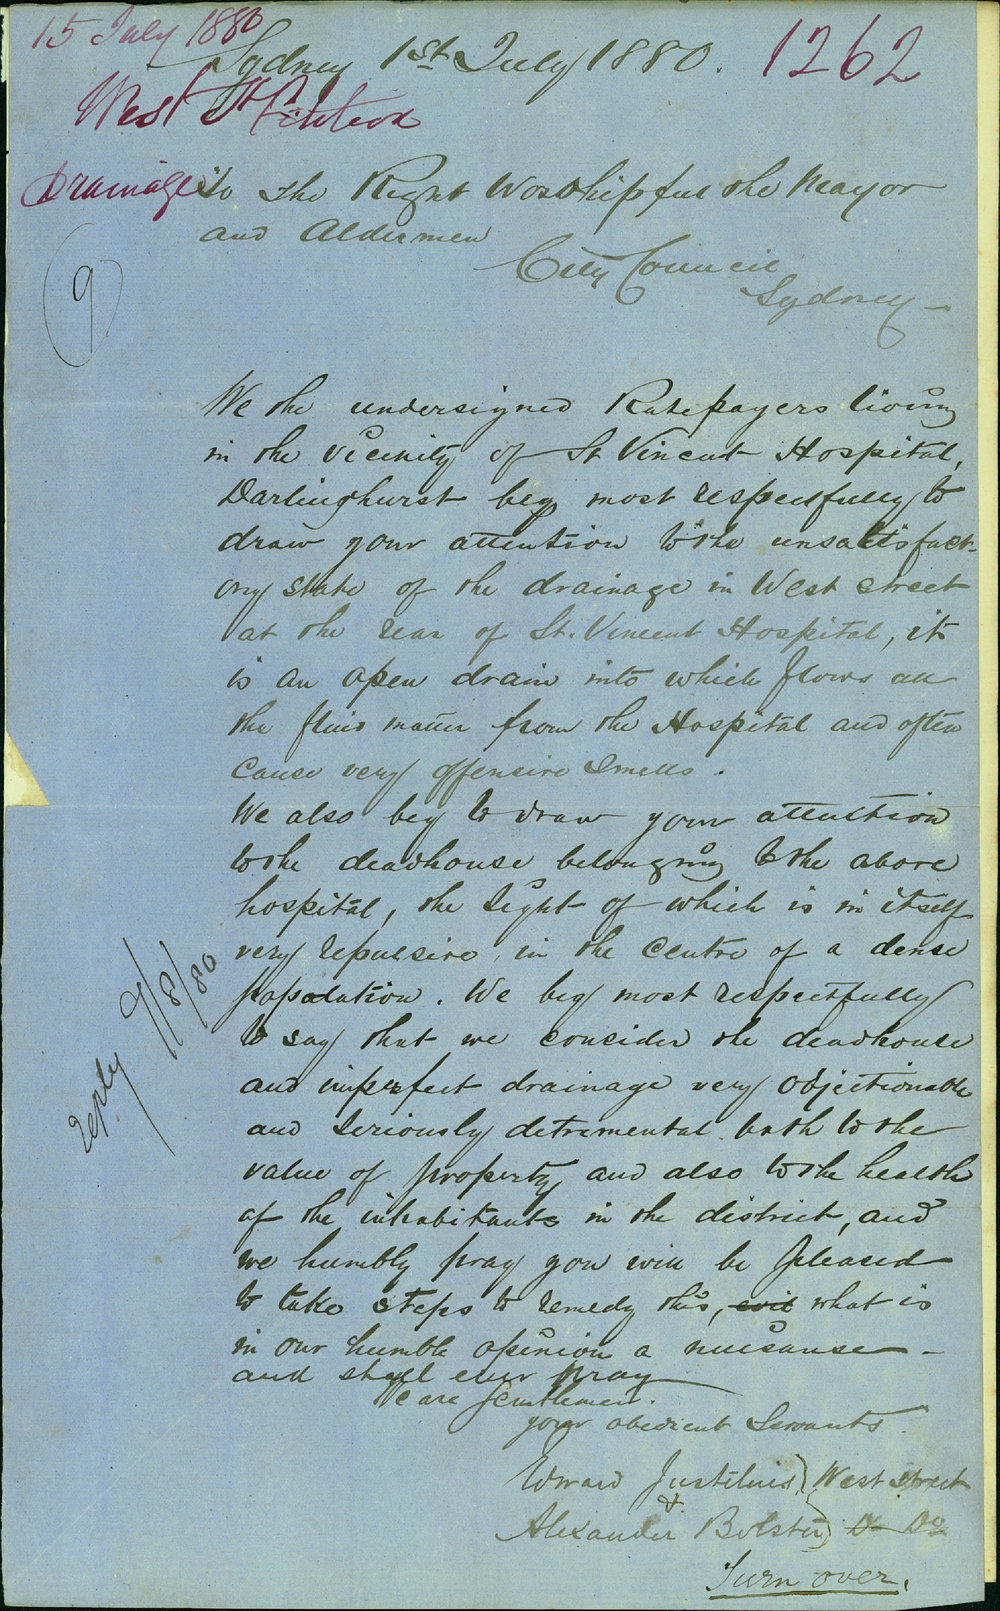 15 July 1880
Sydney 1st July 1880.
1262
West St
Petition
Drainage
To the Right Worshipful the Mayor
and Aldermen
City Council
Sydney
9
We the undersigned Ratepayers living
in the vicinity of St Vincent Hospital,
Darlinghurst beg most respectfully to
draw your attention to the unsatisfact-
ory state of the drainage in West street
at the rear of St. Vincent Hospital, it
is an open drain into which flows all
the fluid matter from the Hospital and often
cause very offensive smells.
We also beg to draw your attention
to the deadhouse belonging to the above
hospital, the sight of which is in itself
very repulsive, in the centre of a dense
population. We beg most respectfully
to say that we concider the deadhouse
and imperfect drainage very objectionable
and seriously detremental both to the
value of property and also to the health
of the inhabitants in the district, and
we humbly pray you will be pleased
to take steps to remedy this, evil what is
in our humble opinion a nuisanse -
and shall ever pray
We are Gentlemen.
your obedient Servants
Edward West street
&
Alexander Bolster Do Do
Turn over.
reply 9/8/80